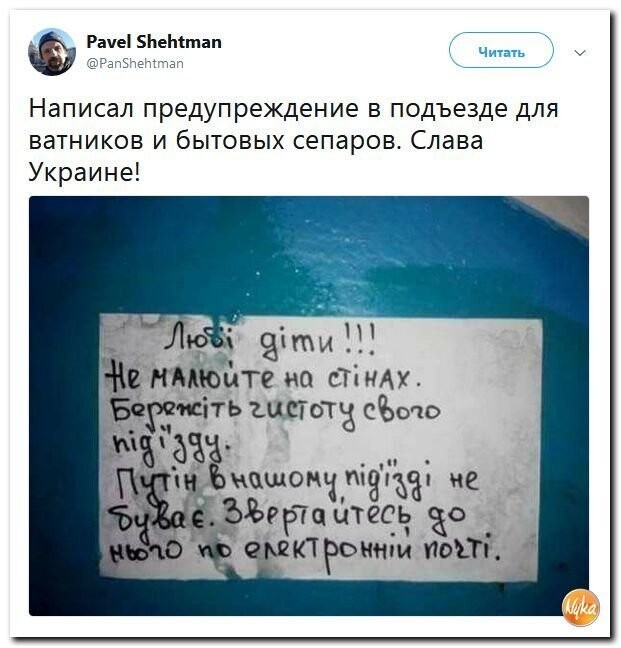 Pavel Shehtman
@PanShehtman
Читать
Написал предупреждение в подъезде для
ватников и бытовых сепаров. Слава
Украине!
Любі діти!!!
Не малюйте на стінах.
Бережіть чистоту свого
під'їзду.
Путін в нашому під'їзді не
буває. Звертайтесь до
нього по електронній почті.